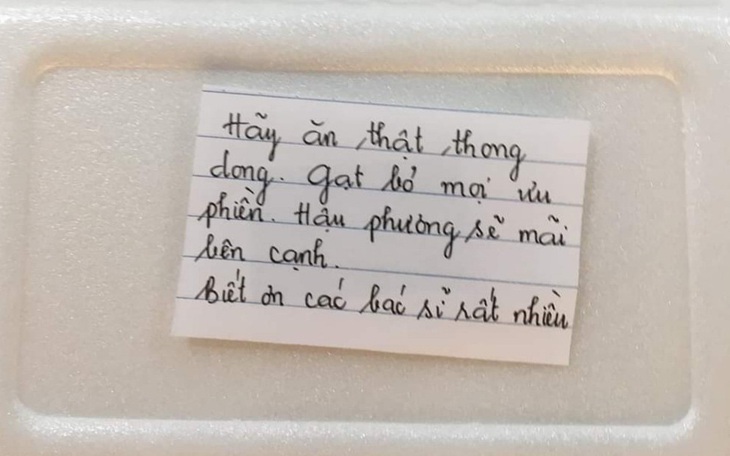 Hãy ăn thật thong
dong. Gạt bỏ mọi ưu
phiền. Hậu phương sẽ mãi
bên cạnh.
Biết ơn các bác sĩ rất nhiều